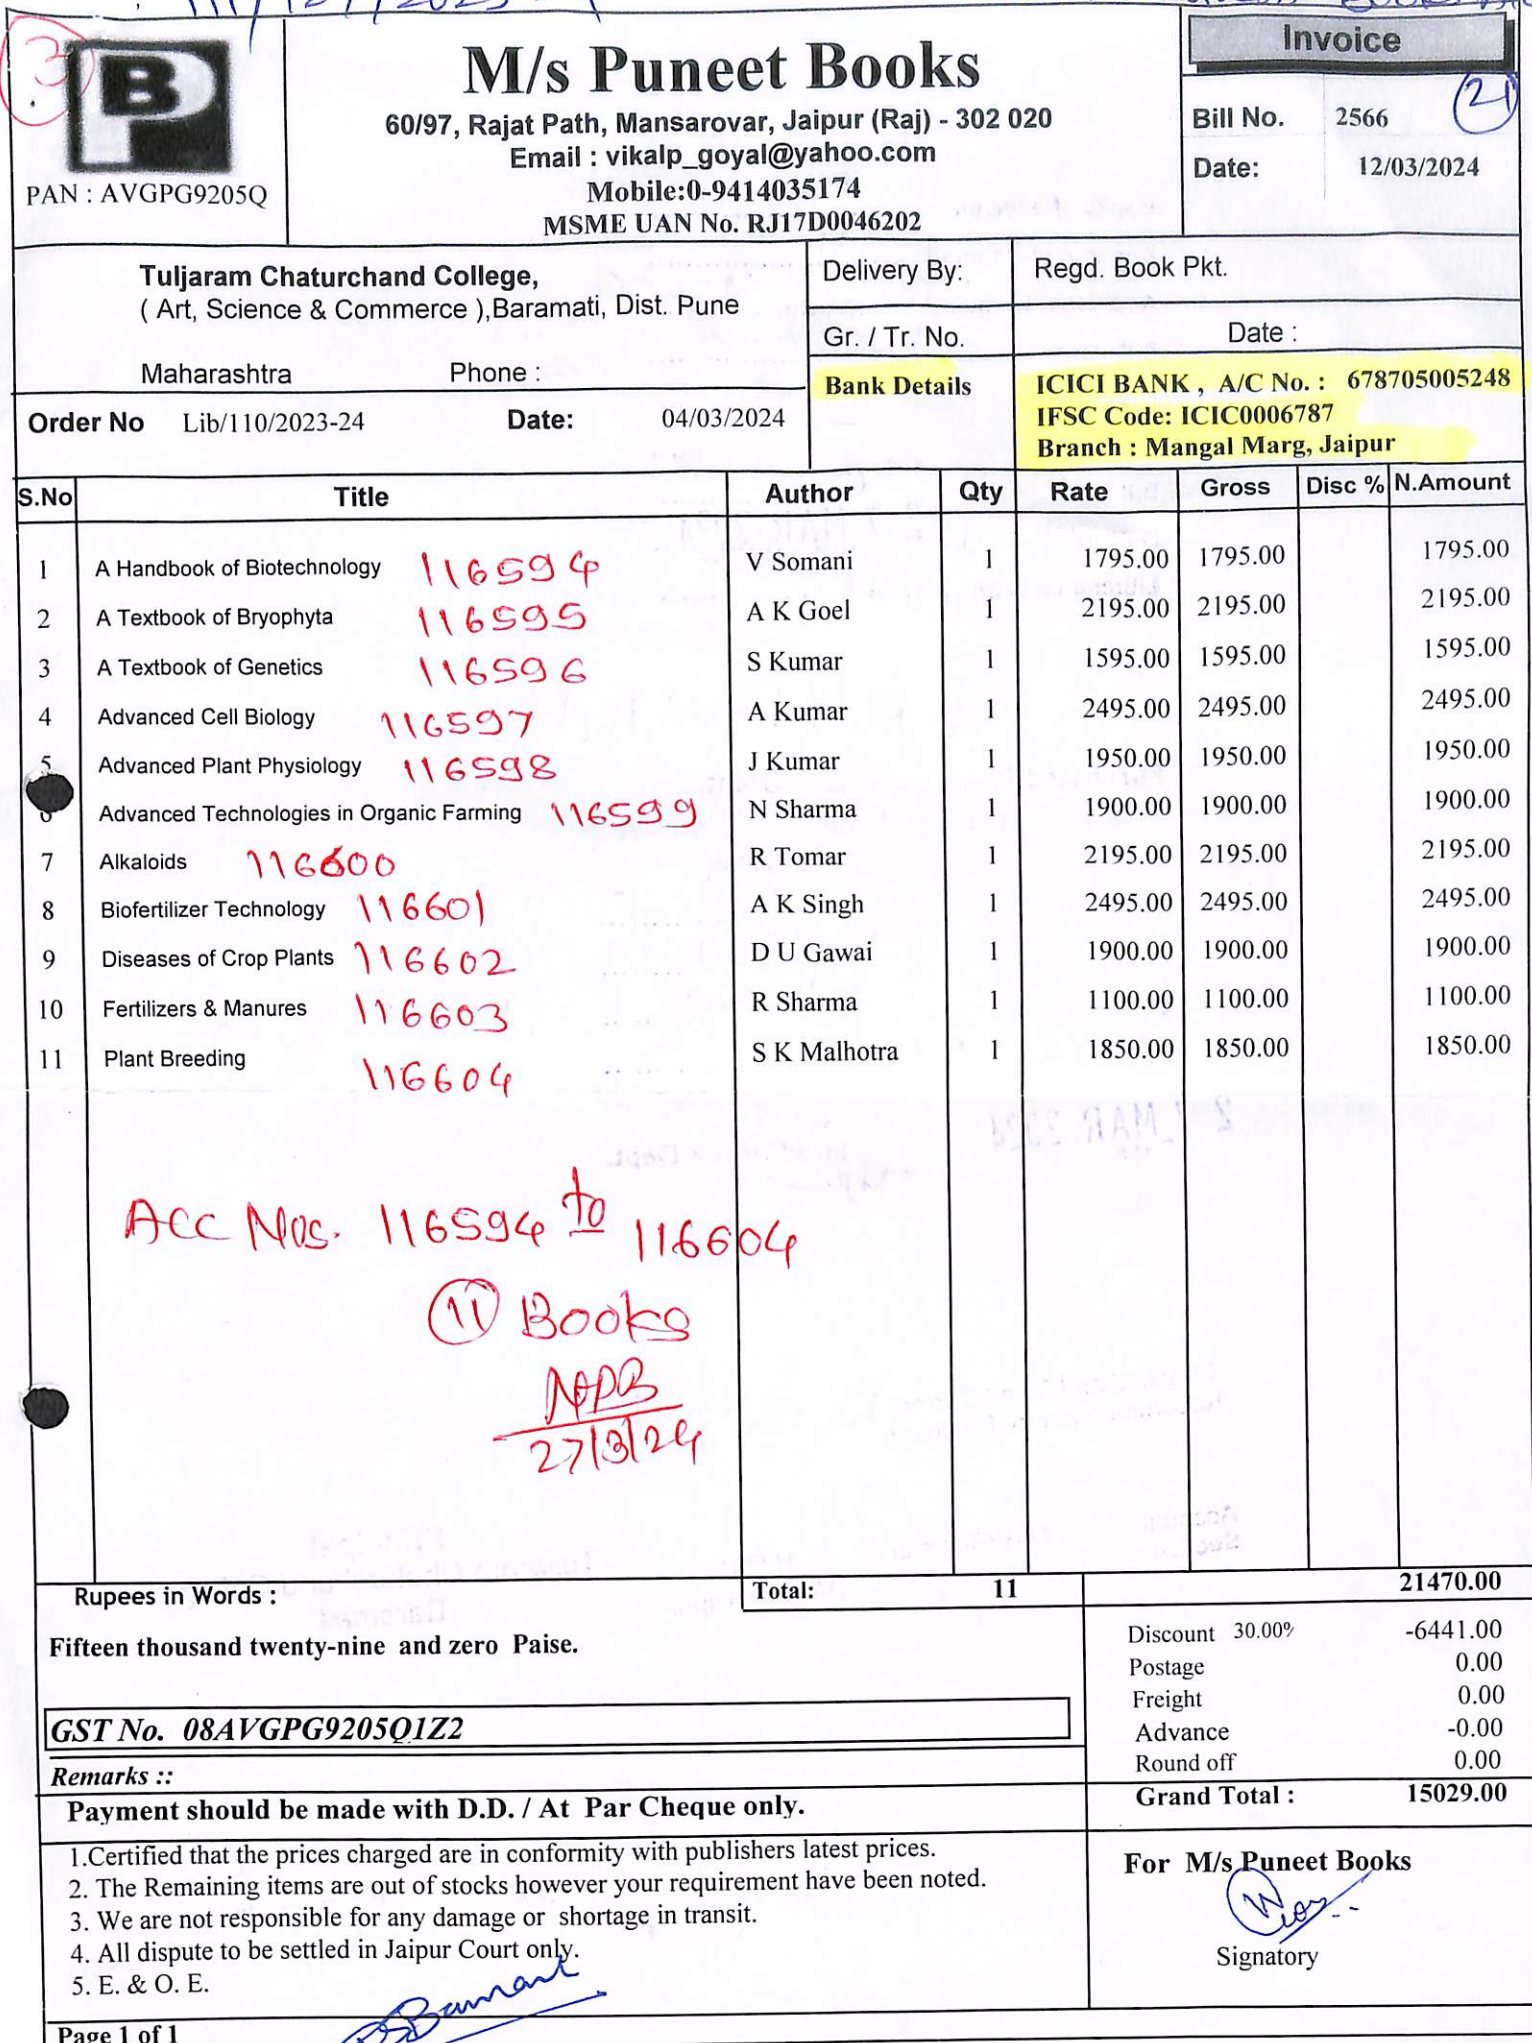 3
BP
PAN : AVGPG9205Q
M/s Puneet Books
60/97, Rajat Path, Mansarovar, Jaipur (Raj) - 302 020
Email : vikalp_goyal@yahoo.com
Mobile:0-9414035174
MSME UAN No. RJ17D0046202
Invoice
Bill No. 2566
21
Date: 12/03/2024
Tuljaram Chaturchand College,
( Art, Science & Commerce ),Baramati, Dist. Pune
Maharashtra Phone :
Order No Lib/110/2023-24 Date: 04/03/2024
Delivery By: Regd. Book Pkt.
Gr. / Tr. No. Date :
Bank Details ICICI BANK , A/C No. : 678705005248
IFSC Code: ICIC0006787
Branch : Mangal Marg, Jaipur
S.No Title Author Qty Rate Gross Disc % N.Amount
1 A Handbook of Biotechnology 116594 V Somani 1 1795.00 1795.00 1795.00
2 A Textbook of Bryophyta 116595 A K Goel 1 2195.00 2195.00 2195.00
3 A Textbook of Genetics 116596 S Kumar 1 1595.00 1595.00 1595.00
4 Advanced Cell Biology 116597 A Kumar 1 2495.00 2495.00 2495.00
5 Advanced Plant Physiology 116598 J Kumar 1 1950.00 1950.00 1950.00
6 Advanced Technologies in Organic Farming 116599 N Sharma 1 1900.00 1900.00 1900.00
7 Alkaloids 116600 R Tomar 1 2195.00 2195.00 2195.00
8 Biofertilizer Technology 116601 A K Singh 1 2495.00 2495.00 2495.00
9 Diseases of Crop Plants 116602 D U Gawai 1 1900.00 1900.00 1900.00
10 Fertilizers & Manures 116603 R Sharma 1 1100.00 1100.00 1100.00
11 Plant Breeding 116604 S K Malhotra 1 1850.00 1850.00 1850.00
Acc Nos. 116594 to 116604
11 Books
27/3/24
Rupees in Words : Total: 11 21470.00
Fifteen thousand twenty-nine and zero Paise.
Discount 30.00% -6441.00
Postage 0.00
Freight 0.00
Advance -0.00
Round off 0.00
Grand Total : 15029.00
GST No. 08AVGPG9205Q1Z2
Remarks ::
Payment should be made with D.D. / At Par Cheque only.
1.Certified that the prices charged are in conformity with publishers latest prices.
2. The Remaining items are out of stocks however your requirement have been noted.
3. We are not responsible for any damage or shortage in transit.
4. All dispute to be settled in Jaipur Court only.
5. E. & O. E.
For M/s Puneet Books
Signatory
Page 1 of 1